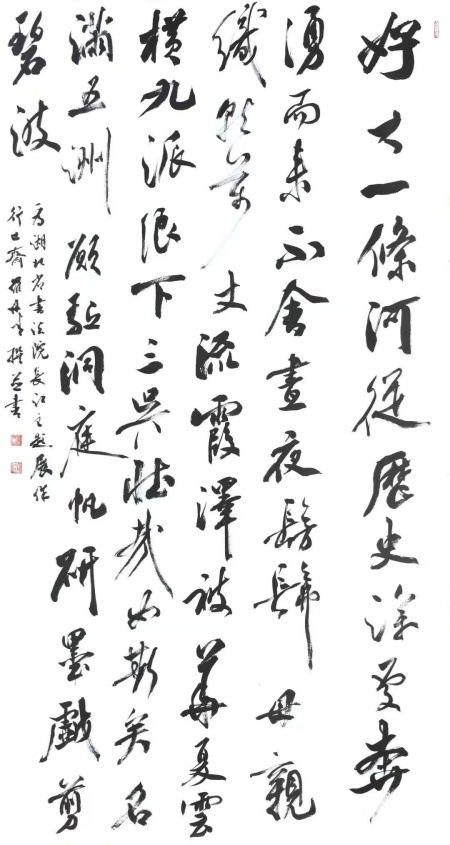 好大一條河從歷史深處奔
湧而來不舍晝夜髣髴母親
織就萬丈流霞澤被華夏雲
橫九派浪下三吳壯哉如斯矣名
滿五洲願駈洞庭帆研墨戲剪
碧波
為湖北省書法院長江主題展作
行己齋撰並書